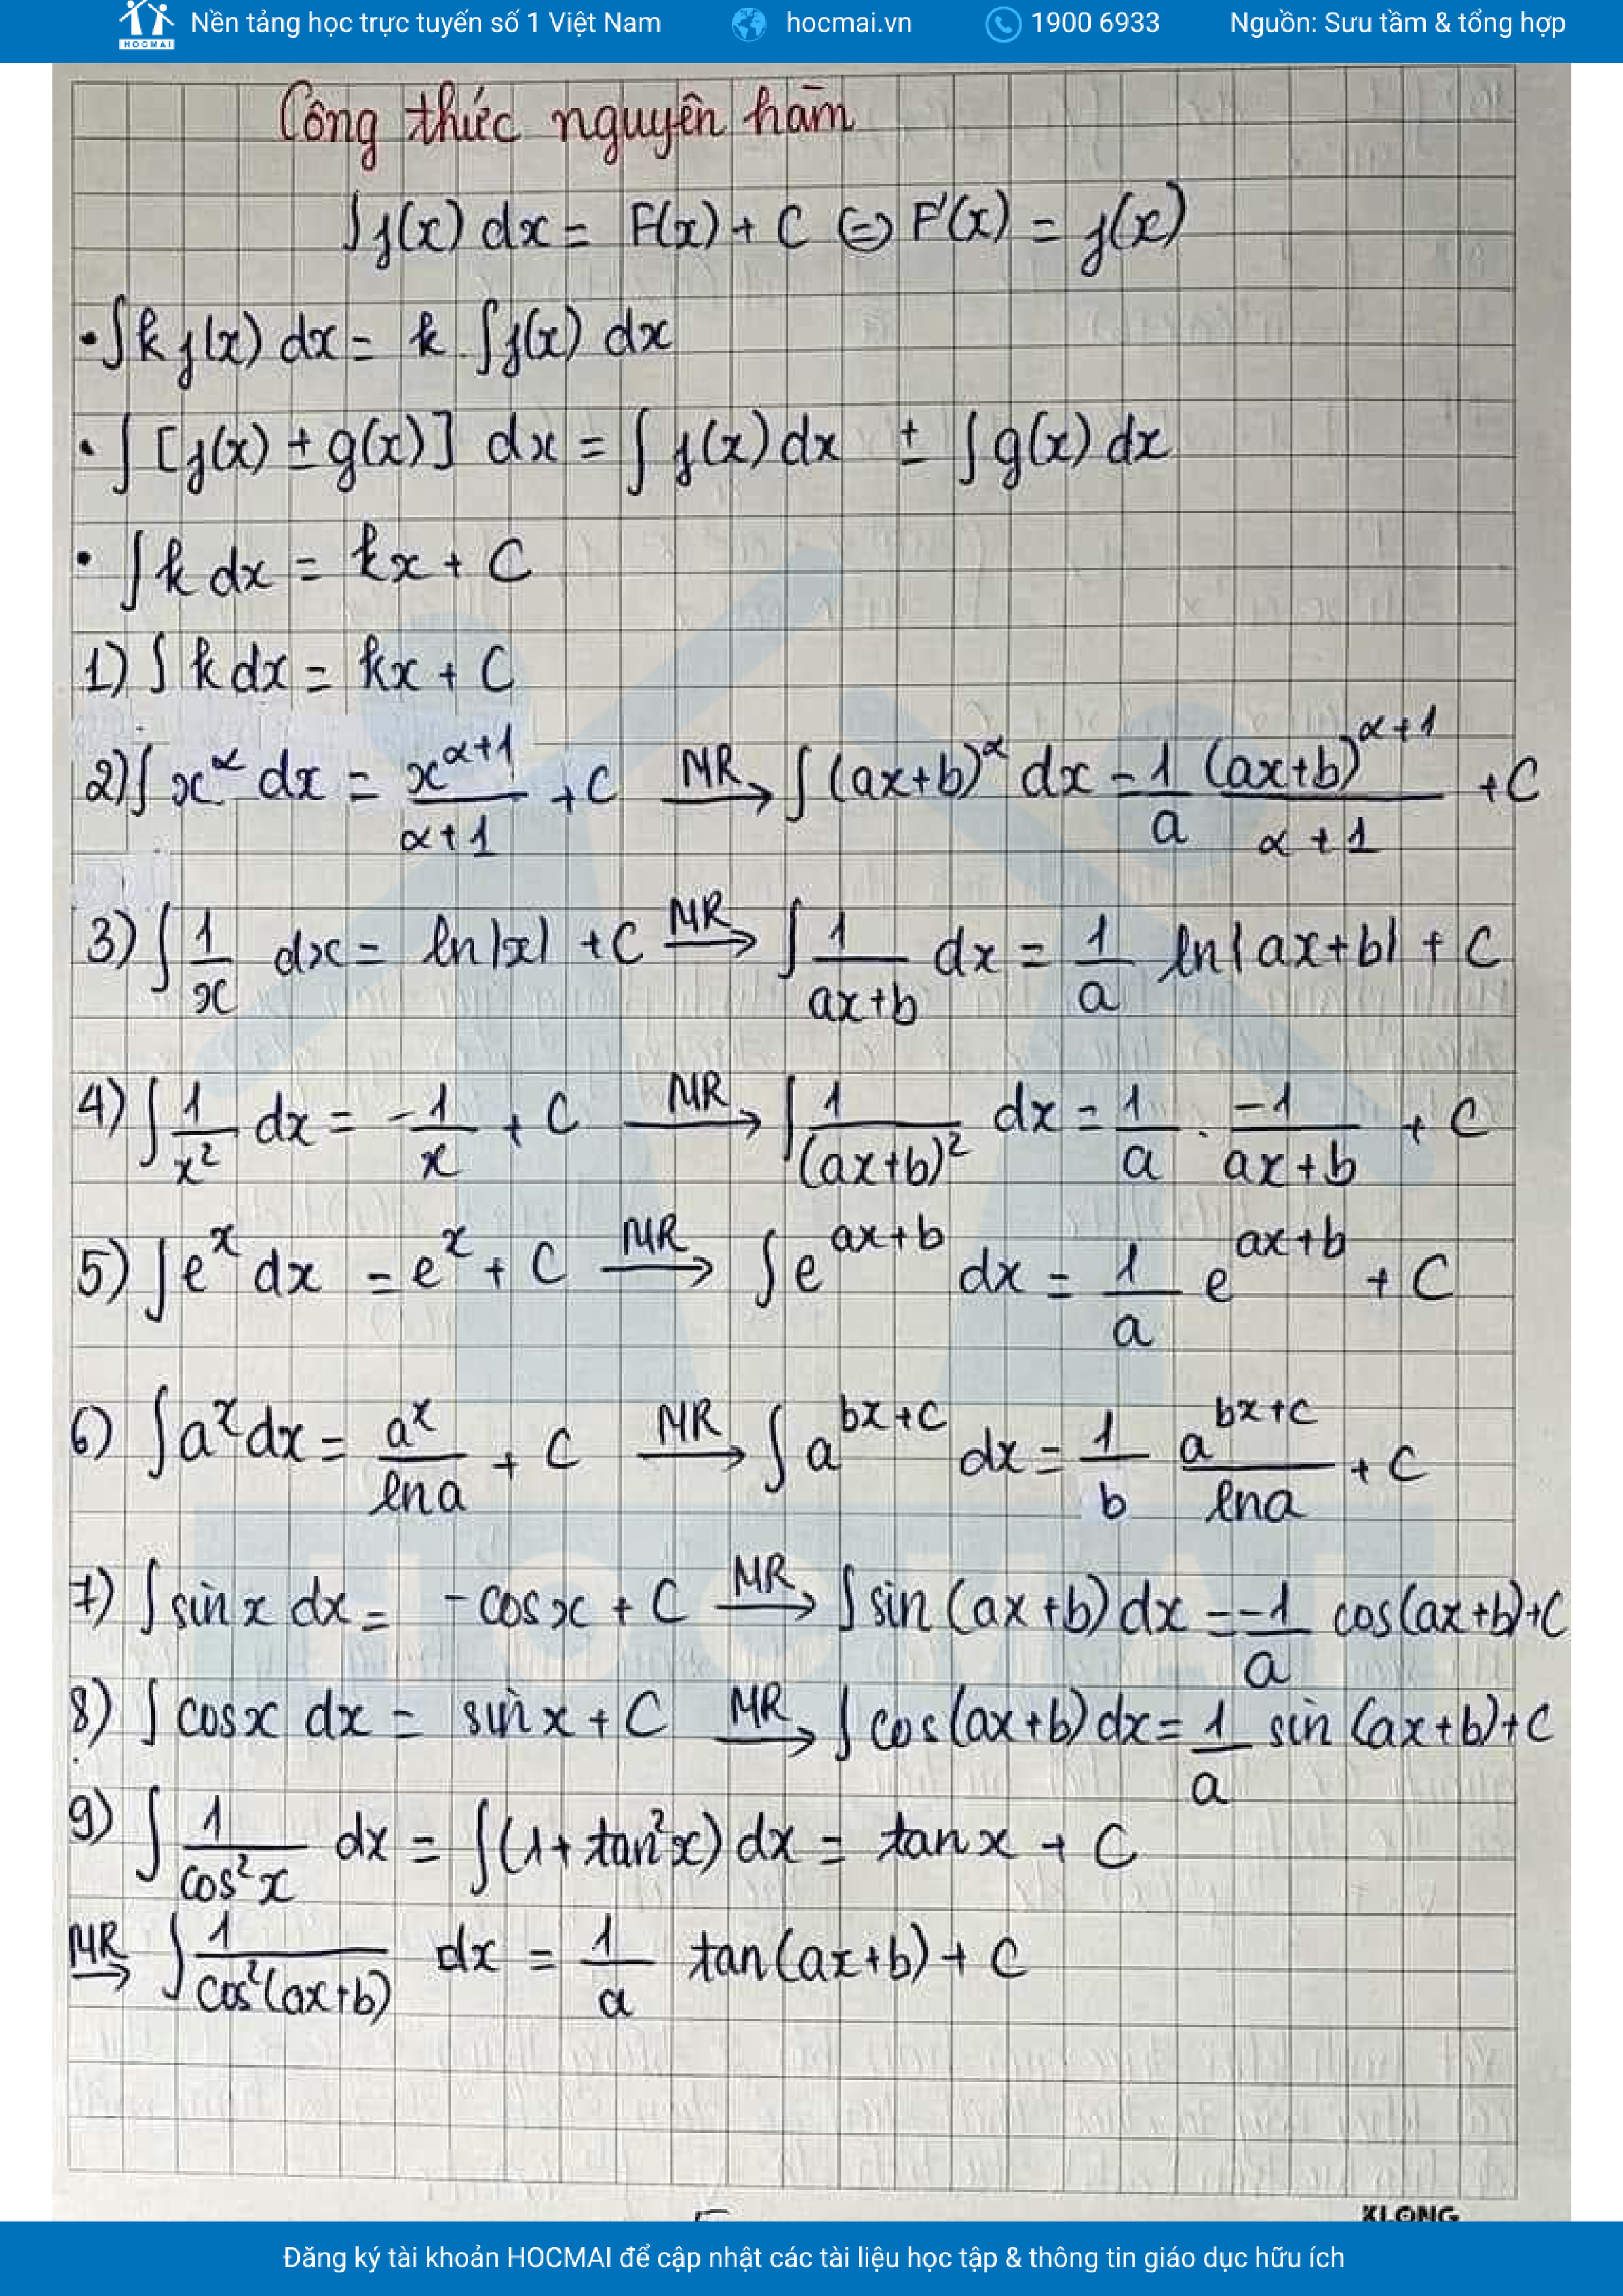 HOCMAI Nền tảng học trực tuyến số 1 Việt Nam hocmai.vn 1900 6933 Nguồn: Sưu tầm & tổng hợp
Công thức nguyên hàm
∫f(x) dx = F(x) + C ⇔ F'(x) = f(x)
• ∫k f(x) dx = k . ∫f(x) dx
• ∫[f(x) ± g(x)] dx = ∫f(x) dx ± ∫g(x) dx
• ∫k dx = kx + C
1) ∫k dx = kx + C
2) ∫x^α dx = x^(α+1)/(α+1) + C MR→ ∫(ax+b)^α dx = 1/a (ax+b)^(α+1)/(α+1) + C
3) ∫1/x dx = ln|x| + C MR→ ∫1/(ax+b) dx = 1/a ln|ax+b| + C
4) ∫1/x² dx = -1/x + C MR→ ∫1/(ax+b)² dx = 1/a . -1/(ax+b) + C
5) ∫e^x dx = e^x + C MR→ ∫e^(ax+b) dx = 1/a e^(ax+b) + C
6) ∫a^x dx = a^x/lna + C MR→ ∫a^(bx+c) dx = 1/b a^(bx+c)/lna + C
7) ∫sinx dx = -cosx + C MR→ ∫sin(ax+b) dx = -1/a cos(ax+b) + C
8) ∫cosx dx = sinx + C MR→ ∫cos(ax+b) dx = 1/a sin(ax+b) + C
9) ∫1/cos²x dx = ∫(1 + tan²x) dx = tanx + C
MR→ ∫1/cos²(ax+b) dx = 1/a tan(ax+b) + C
HOCMAI
KLONG
Đăng ký tài khoản HOCMAI để cập nhật các tài liệu học tập & thông tin giáo dục hữu ích